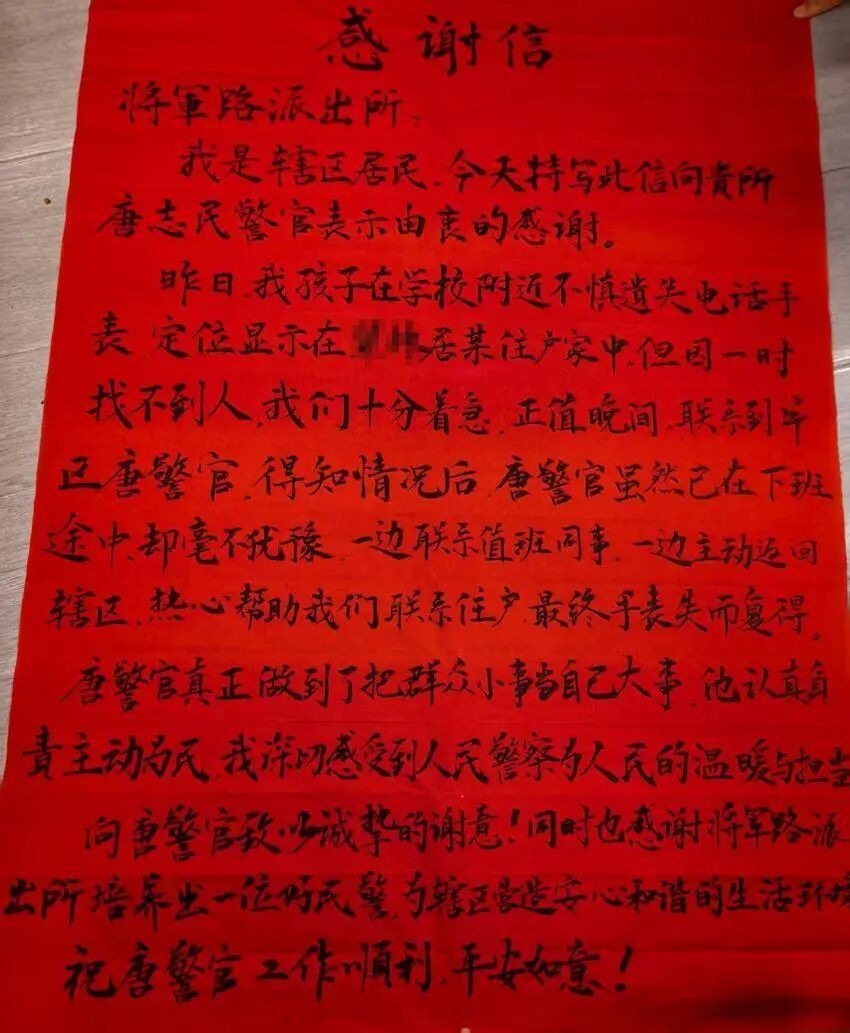 感谢信
将軍路派出所：
我是辖区居民，今天特写此信向贵所
唐志民警官表示由衷的感谢。
昨日，我孩子在学校附近不慎遗失电话手
表，定位显示在居某住户家中，但因一时
找不到人，我们十分着急，正值晚间，联系到
区唐警官，得知情况后，唐警官虽然已在下班
途中，却毫不犹豫，一边联系值班同事，一边主动返回
辖区，热心帮助我们联系住户，最终手表失而复得。
唐警官真正做到了把群众小事当自己大事，他认真负
责主动为民，我深切感受到人民警察为人民的温暖与担当
向唐警官致以诚挚的谢意！同时也感谢将军路派
出所培养出一位好民警，为辖区营造安心和谐的生活环境
祝唐警官工作順利，平安如意！